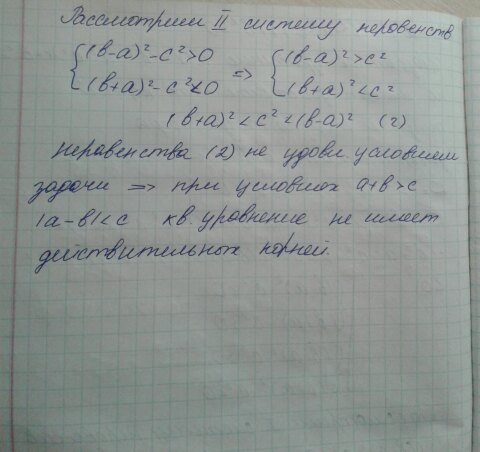 Рассмотрим II систему неровенств
{(в-а)²-с²>0 => {(в-а)²>с²
{(в+а)²-с²<0 {(в+а)²<с²
(в+а)²<с²<(в-а)² (2)
Неравенства (2) не удовл. условием
задачи => при условиях а+в>с
|а-в|<с кв. уравнение не имеет
действительных корней.